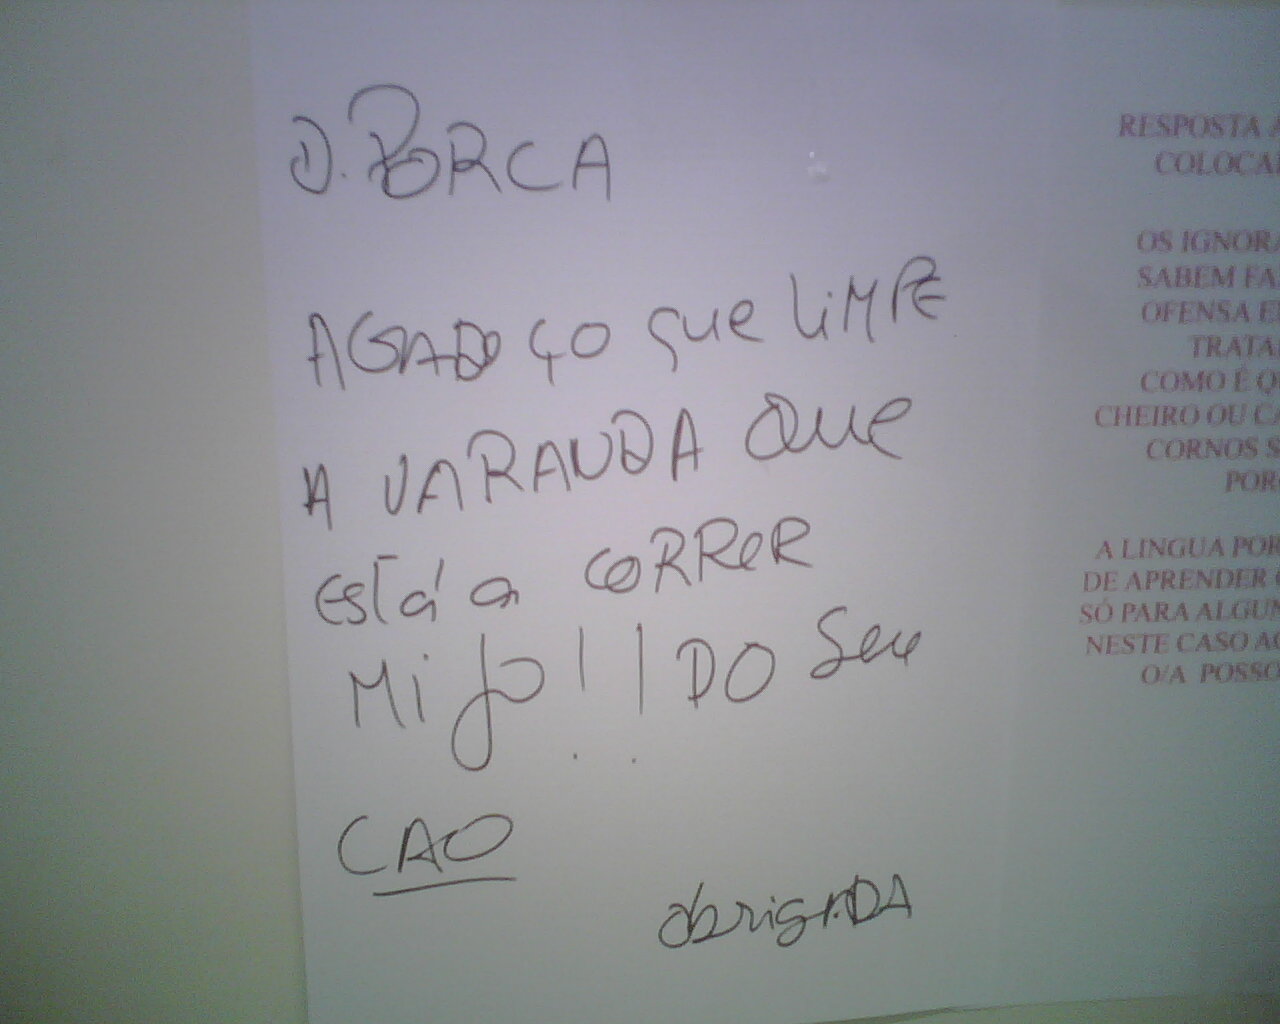 D. PORCA
AGRADOÇO que LiMPE
A VARANDA QUE
está a CORRER
Mijo!! DO Seu
CAO
obrigADA
RESPOSTA
COLOCA
OS IGNORA
SABEM FA
OFENSA E
TRATA
COMO É Q
CHEIRO OU CA
CORNOS S
POR
A LINGUA POR
DE APRENDER
SÓ PARA ALGUN
NESTE CASO AO
O/A POSSO